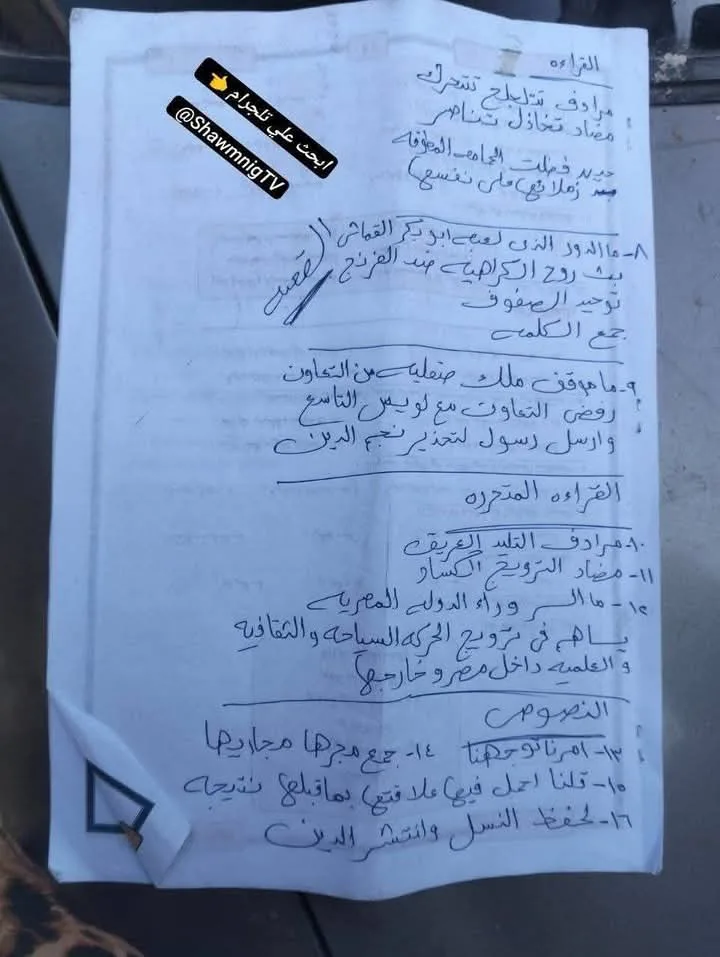 ابحث علي تلجرام 👈
@ShawmnigTV
القراءه
مرادف تتلجلج تتحرك
مضاد تخاذل تناصر
فضلت الحمامه المطوقه
زملائها على نفسها
٨- ما الدور الذى لعبه ابو بكر القماش
بث روح الكراهيه ضد الفرنج
توحيد الصفوف
جمع الكلمه
٩- ما موقف ملك صقليه من التعاون
رفض التعاون مع لويس التاسع
وارسل رسول لتحذير نجم الدين
القراءه المتحرره
١٠- مرادف التليد العريق
١١- مضاد الترويج الكساد
١٢- ما السر وراء الدوله المصريه
يساهم فى ترويج الحركه السياحه والثقافيه
والعلميه داخل مصر وخارجها
النصوص
١٣- امرنا توجهنا ١٤- جمع مجرها مجاريها
١٥- قلنا احمل فيها علاقتها بماقبلها نتيجه
١٦- لحفظ النسل وانتشر الدين